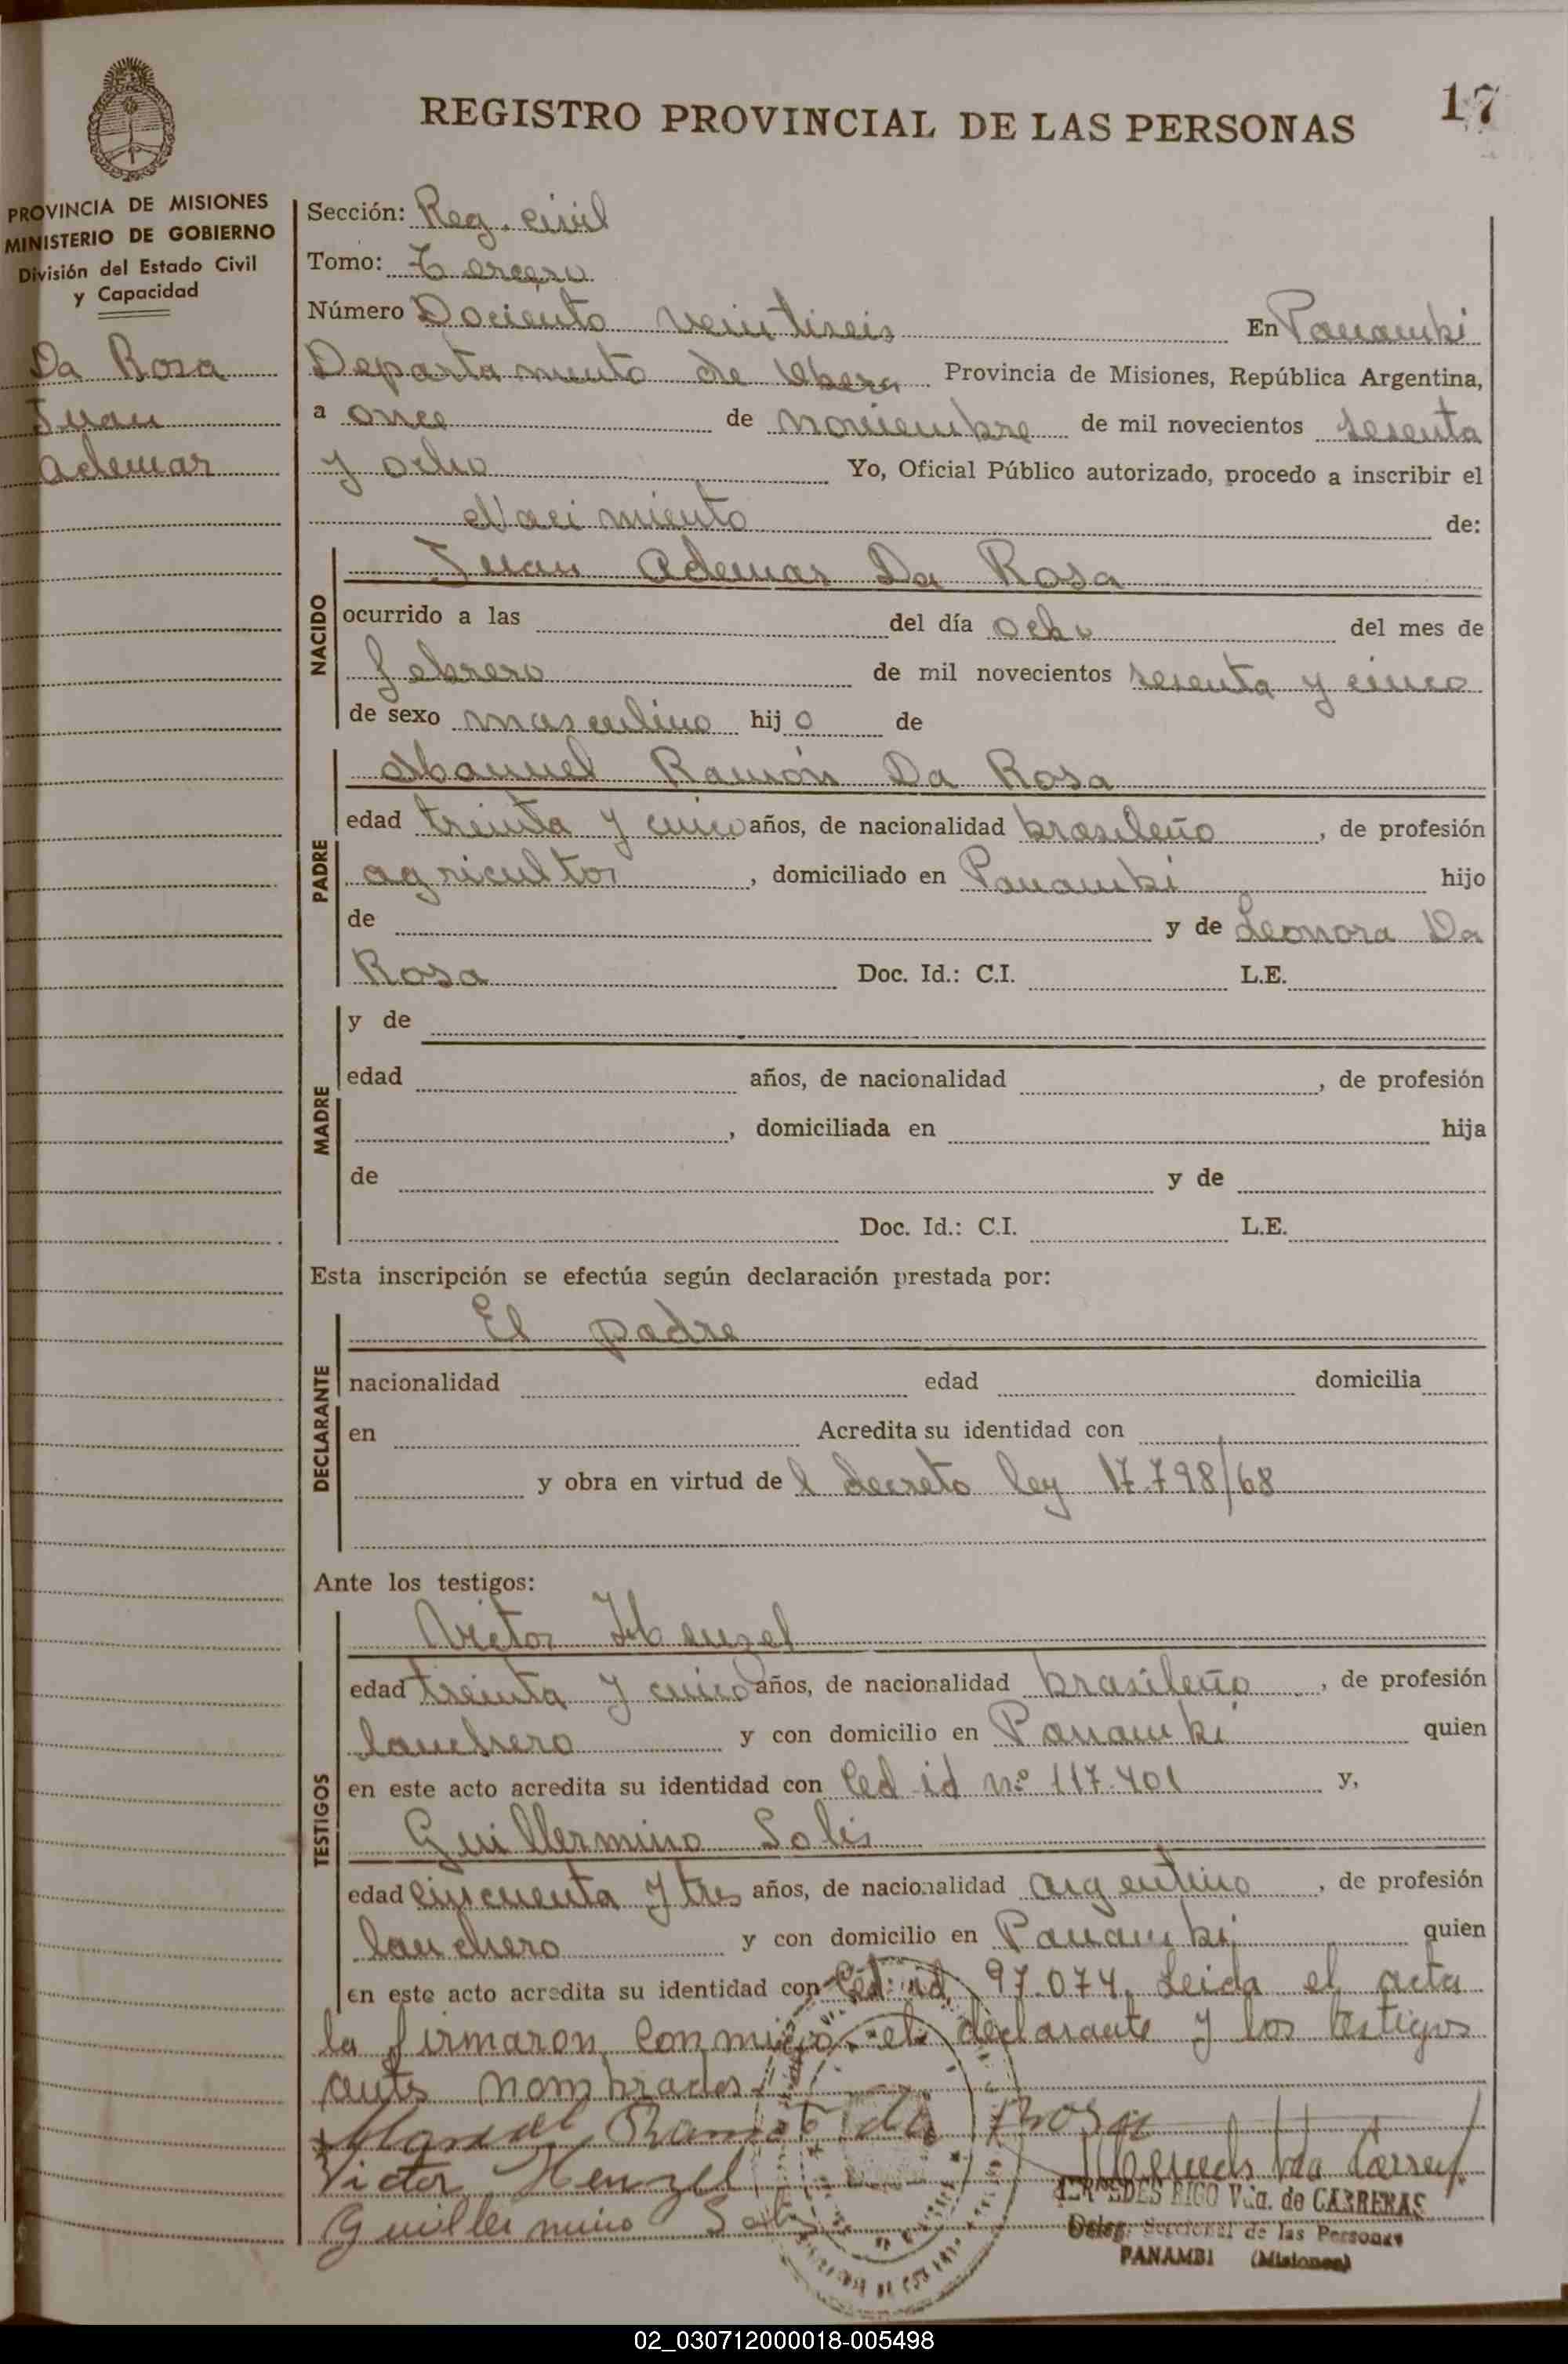 17
REGISTRO PROVINCIAL DE LAS PERSONAS
PROVINCIA DE MISIONES
MINISTERIO DE GOBIERNO
División del Estado Civil
y Capacidad
Da Rosa
Juan
Ademar
Sección: Reg. civil
Tomo: Tercero
Número Dociento veintiseis En Panambi
Departamento de Obera Provincia de Misiones, República Argentina,
a once de noviembre de mil novecientos sesenta
y ocho Yo, Oficial Público autorizado, procedo a inscribir el
Nacimiento de:
NACIDO
Juan Ademar Da Rosa
ocurrido a las del día ocho del mes de
febrero de mil novecientos sesenta y cinco
de sexo masculino hijo de
PADRE
Manuel Ramón Da Rosa
edad treinta y cinco años, de nacionalidad brasileño, de profesión
agricultor, domiciliado en Panambi hijo
de y de Leonora Da
Rosa Doc. Id.: C.I. L.E.
MADRE
y de
edad años, de nacionalidad , de profesión
, domiciliada en hija
de y de
Doc. Id.: C.I. L.E.
Esta inscripción se efectúa según declaración prestada por:
DECLARANTE
El padre
nacionalidad edad domicilia
en Acredita su identidad con
y obra en virtud de l decreto ley 17.798/68
Ante los testigos:
TESTIGOS
Victor Henzel
edad treinta y cinco años, de nacionalidad brasileño, de profesión
lanchero y con domicilio en Panambi quien
en este acto acredita su identidad con Ced id nº 117.401 y,
Guillermino Solis
edad cincuenta y tres años, de nacionalidad argentino, de profesión
lanchero y con domicilio en Panambi quien
en este acto acredita su identidad con Ced. id. 97.074. Leida el acta
la firmaron conmigo el declarante y los testigos
ants nombrados
Manuel Ramon da Rosa
Victor Henzel
Guillermino Solis
MERCEDES RICO Vda. de CARRERAS
Deleg. Seccional de las Personas
PANAMBI (Misiones)
02_030712000018-005498